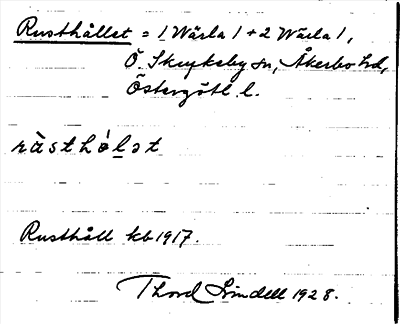 Rusthållet = 1 Wärla 1 + 2 Wärla 1,
Ö. Skrukeby sn, Åkerbo hd,
Östergötl. l.
rùsthó̀lət
Rusthåll kb 1917.
Thord Lindell 1928.